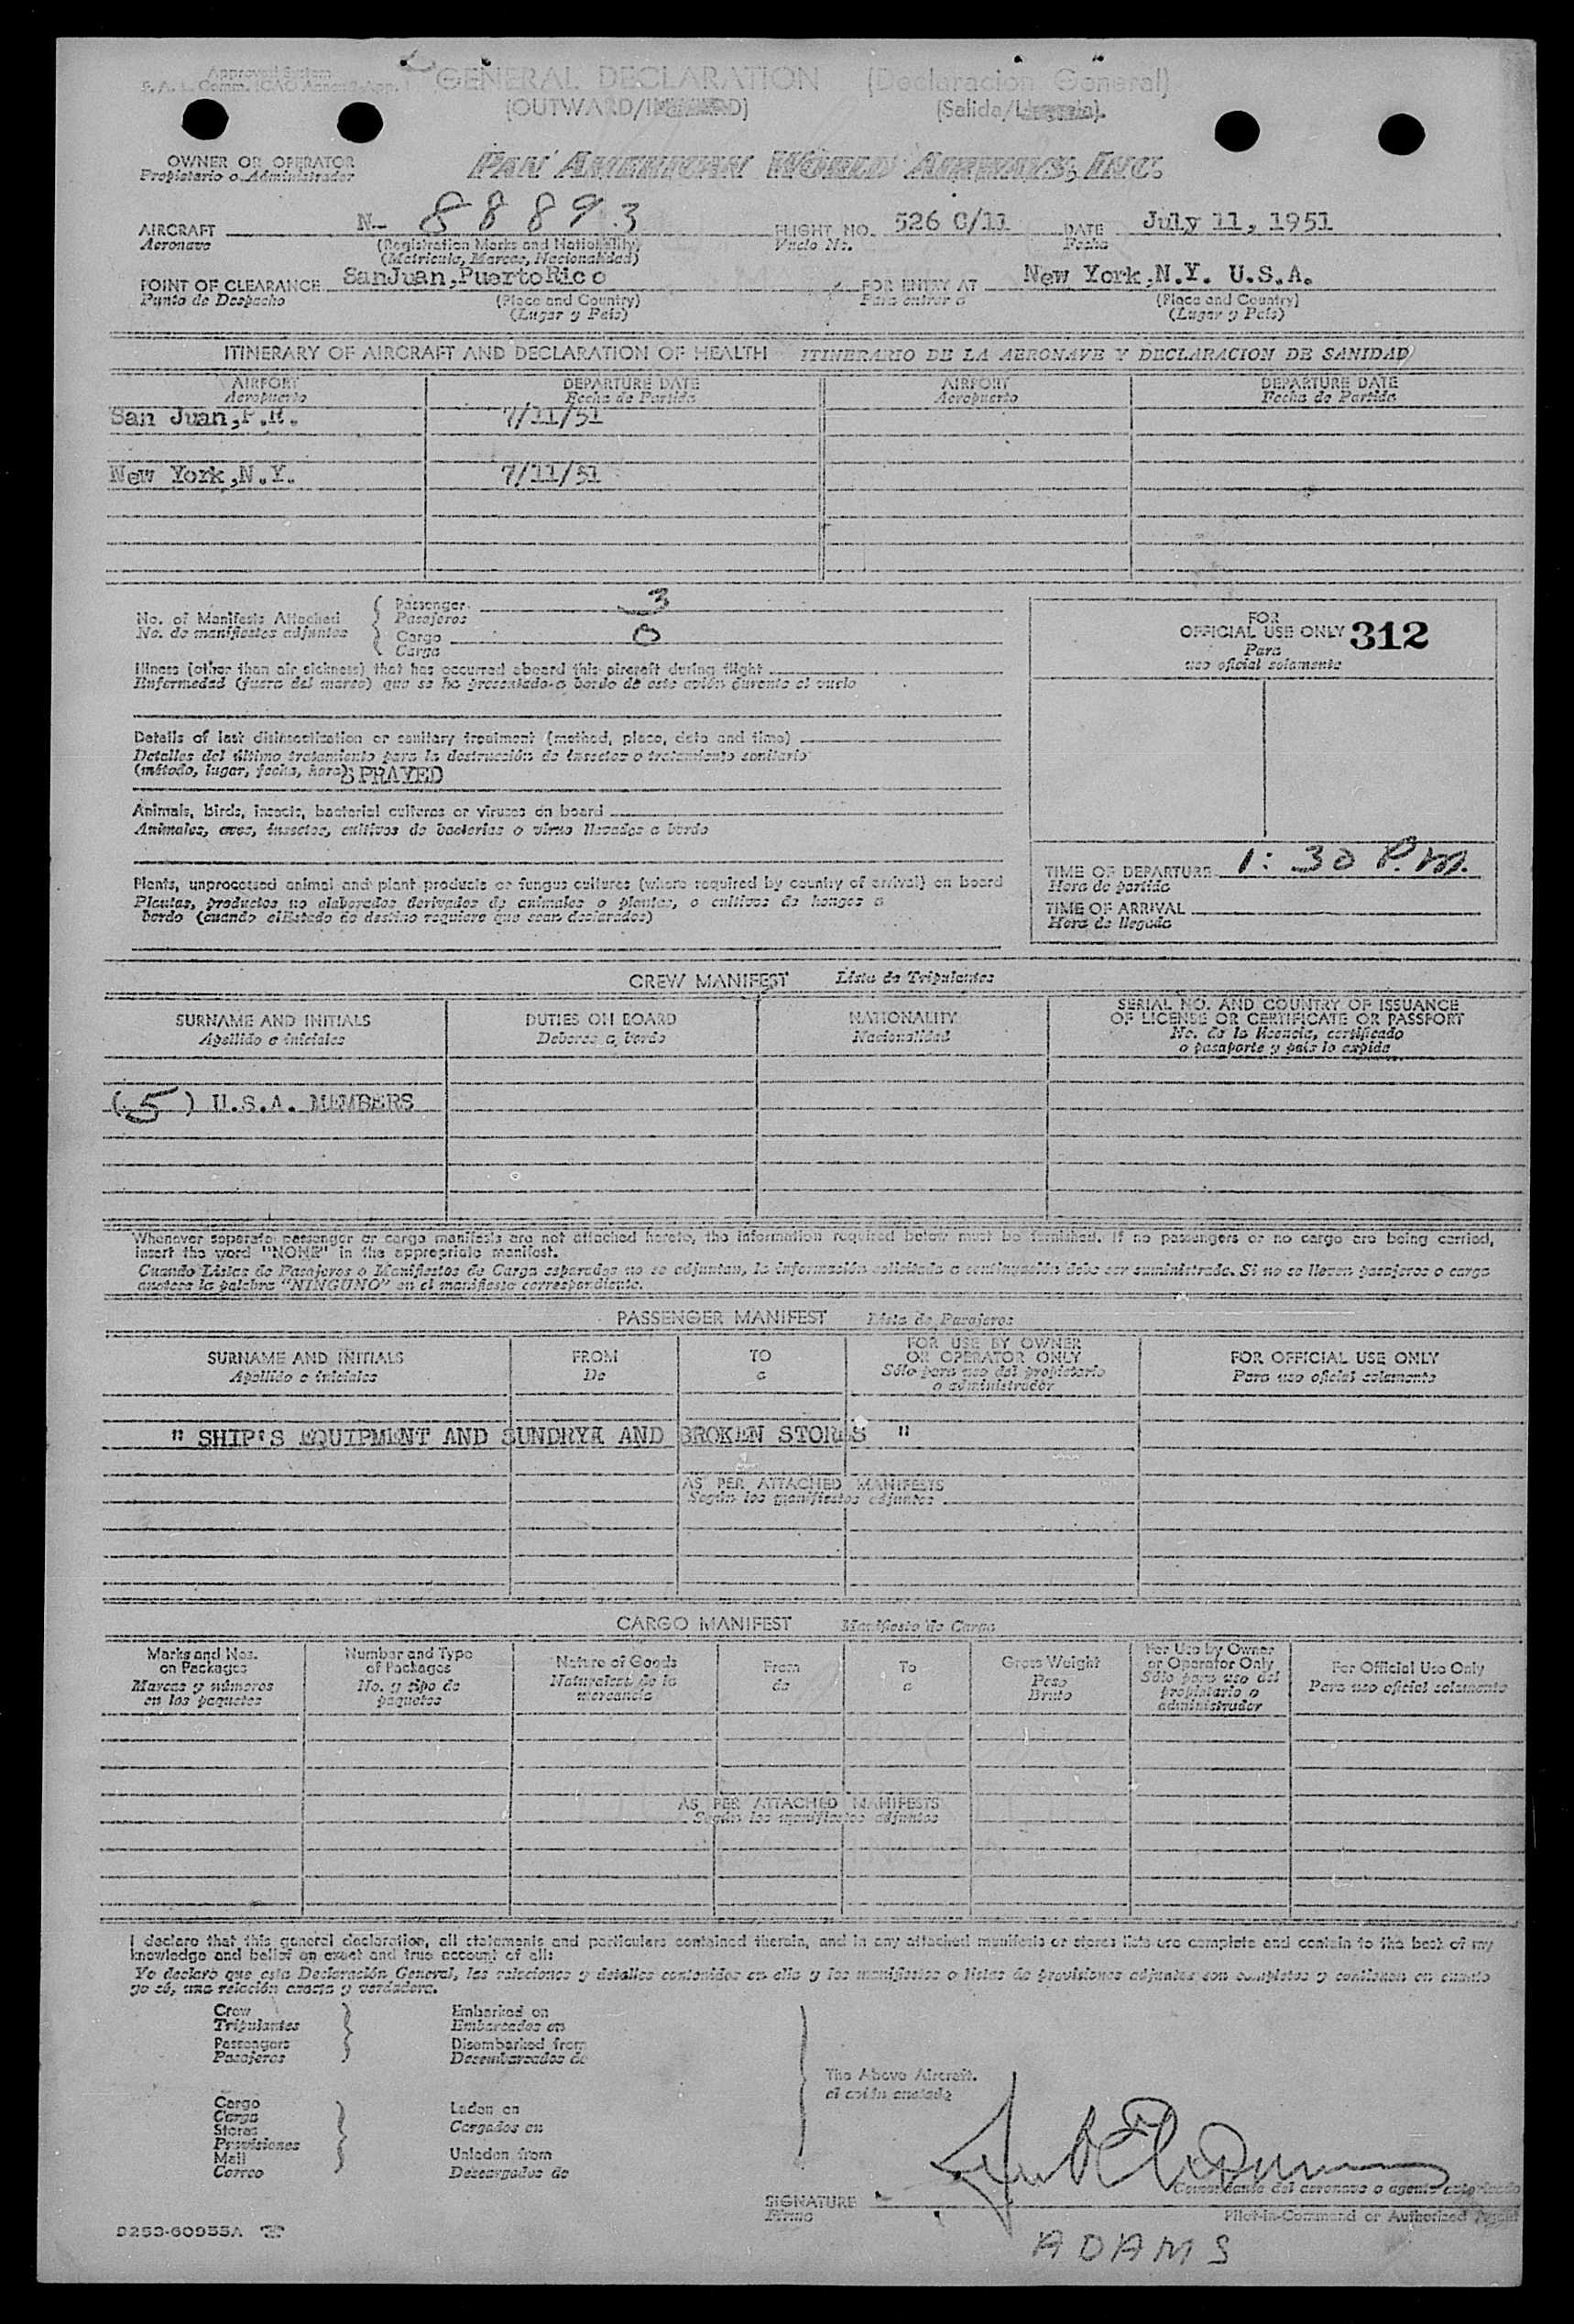 Approved System
GENERAL DECLARATION (Declaracion General)
(OUTWARD/INWARD) (Salida/Llegada).
OWNER OR OPERATOR
Propietario o Administrador
PAN AMERICAN WORLD AIRWAYS, INC.
AIRCRAFT N- 88893 FLIGHT NO. 526 C/11 DATE July 11, 1951
Aeronave (Registration Marks and Nationality) Vuelo No. Fecha
(Matricula, Marcas, Nacionalidad)
POINT OF CLEARANCE SanJuan,PuertoRico FOR ENTRY AT New York,N.Y. U.S.A.
Punto de Despacho (Place and Country) Para entrar a (Place and Country)
(Lugar y Pais) (Lugar y Pais)
ITINERARY OF AIRCRAFT AND DECLARATION OF HEALTH ITINERARIO DE LA AERONAVE Y DECLARACION DE SANIDAD)
AIRPORT DEPARTURE DATE AIRPORT DEPARTURE DATE
Aeropuerto Fecha de Partida Aeropuerto Fecha de Partida
San Juan,P.R. 7/11/51
New York,N.Y. 7/11/51
No. of Manifests Attached Passenger 3
No. de manifiestos adjuntos Pasajeros
Cargo 0
Carga
FOR
OFFICIAL USE ONLY 312
Para
uso oficial solamente
Illness (other than air sickness) that has occurred aboard this aircraft during flight
Enfermedad (fuera del mareo) que se ha presentado a bordo de este avión durante el vuelo
Details of last disinsectization or sanitary treatment (method, place, date and time)
Detalles del último tratamiento para la destrucción de insectos o tratamiento sanitario
(método, lugar, fecha, hora) SPRAYED
Animals, birds, insects, bacterial cultures or viruses on board
Animales, aves, insectos, cultivos de bacterias o virus llevados a bordo
Plants, unprocessed animal and plant products or fungus cultures (where required by country of arrival) on board
Plantas, productos no elaborados derivados de animales o plantas, o cultivos de hongos a
bordo (cuando el Estado de destino requiere que sean declarados)
TIME OF DEPARTURE 1:30 P.m.
Hora de partida
TIME OF ARRIVAL
Hora de llegada
CREW MANIFEST Lista de Tripulantes
SURNAME AND INITIALS DUTIES ON BOARD NATIONALITY SERIAL NO. AND COUNTRY OF ISSUANCE
Apellido e iniciales Deberes a bordo Nacionalidad OF LICENSE OR CERTIFICATE OR PASSPORT
No. de la licencia, certificado
o pasaporte y país lo expide
(5) U.S.A. MEMBERS
Whenever separate passenger or cargo manifests are not attached hereto, the information required below must be furnished. If no passengers or no cargo are being carried,
insert the word "NONE" in the appropriate manifest.
Cuando Listas de Pasajeros o Manifiestos de Carga separados no se adjuntan, la información solicitada a continuación debe ser suministrada. Si no se llevan pasajeros o carga
anotese la palabra "NINGUNO" en el manifiesto correspondiente.
PASSENGER MANIFEST Lista de Pasajeros
SURNAME AND INITIALS FROM TO FOR USE BY OWNER FOR OFFICIAL USE ONLY
Apellido e iniciales De a OR OPERATOR ONLY Para uso oficial solamente
Sólo para uso del propietario
o administrador
" SHIP'S EQUIPMENT AND SUNDRYA AND BROKEN STORES "
AS PER ATTACHED MANIFESTS
Según los manifiestos adjuntos
CARGO MANIFEST Manifiesto de Carga
Marks and Nos. Number and Type Nature of Goods From To Gross Weight For Use by Owner For Official Use Only
on Packages of Packages Naturaleza de la de a Peso or Operator Only Para uso oficial solamente
Marcas y números No. y tipo de mercancia Bruto Sólo para uso del
en los paquetes paquetes propietario o
administrador
AS PER ATTACHED MANIFESTS
Según los manifiestos adjuntos
I declare that this general declaration, all statements and particulars contained therein, and in any attached manifests or stores lists are complete and contain to the best of my
knowledge and belief an exact and true account of all:
Yo declaro que esta Declaración General, las relaciones y detalles contenidos en ella y los manifiestos o listas de provisiones adjuntas son completos y contienen en cuanto
yo sé, una relación exacta y verdadera.
Crew Embarked on
Tripulantes Embarcados en
Passengers Disembarked from
Pasajeros Desembarcados de
The Above Aircraft.
el avión anotado
Cargo Laden on
Carga Cargados en
Stores
Provisiones
Mail Unladen from
Correo Descargados de
Comandante del aeronave o agente autorizado
SIGNATURE
Firma
Pilot-in-Command or Authorized Agent
9253-60955A
ADAMS